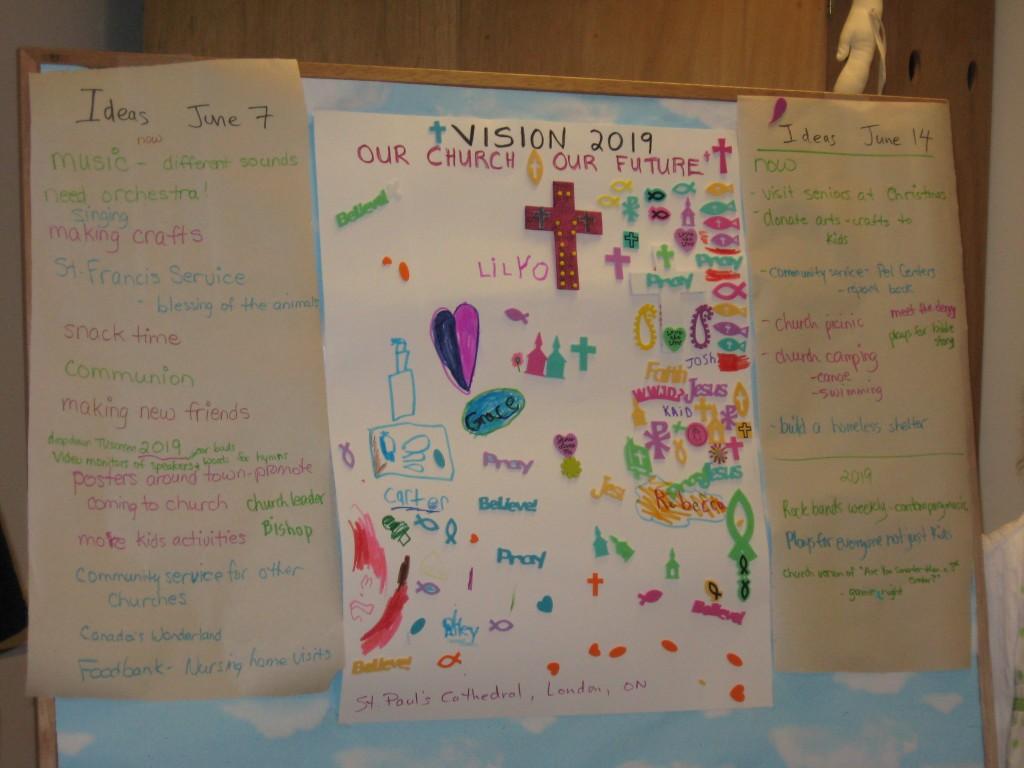 Ideas June 7
now
music - different sounds
need orchestra!
singing
making crafts
St. Francis Service
- blessing of the animals
snack time
Communion
making new friends
2019
Video monitors of speakers + words for hymns
posters around town - promote
coming to church
church leader
Bishop
more kids activities
Community service for other
Churches
Canada's Wonderland
Foodbank - Nursing home visits
VISION 2019
OUR CHURCH OUR FUTURE
Believe!
LILYO
Pray
Pray
JOSH
Faith
Jesus
WWJD?
KAID
Grace
Pray
Jesus
Jes
Rebecca
Carter
Believe!
Pray
Believe!
Alley
Believe!
St. Paul's Cathedral, London, ON
Ideas June 14
now
- visit seniors at Christmas
- donate arts - crafts to
kids
- community service - Pet Centers
- report back
- church picinic
meet the clergy
plays for bible
story
- church camping
- canoe
- swimming
- build a homeless shelter
2019
Rock bands weekly - contemporary music
Plays for everyone not just kids
church version of "Are You Smarter than a 5th
Grader?"
- games night